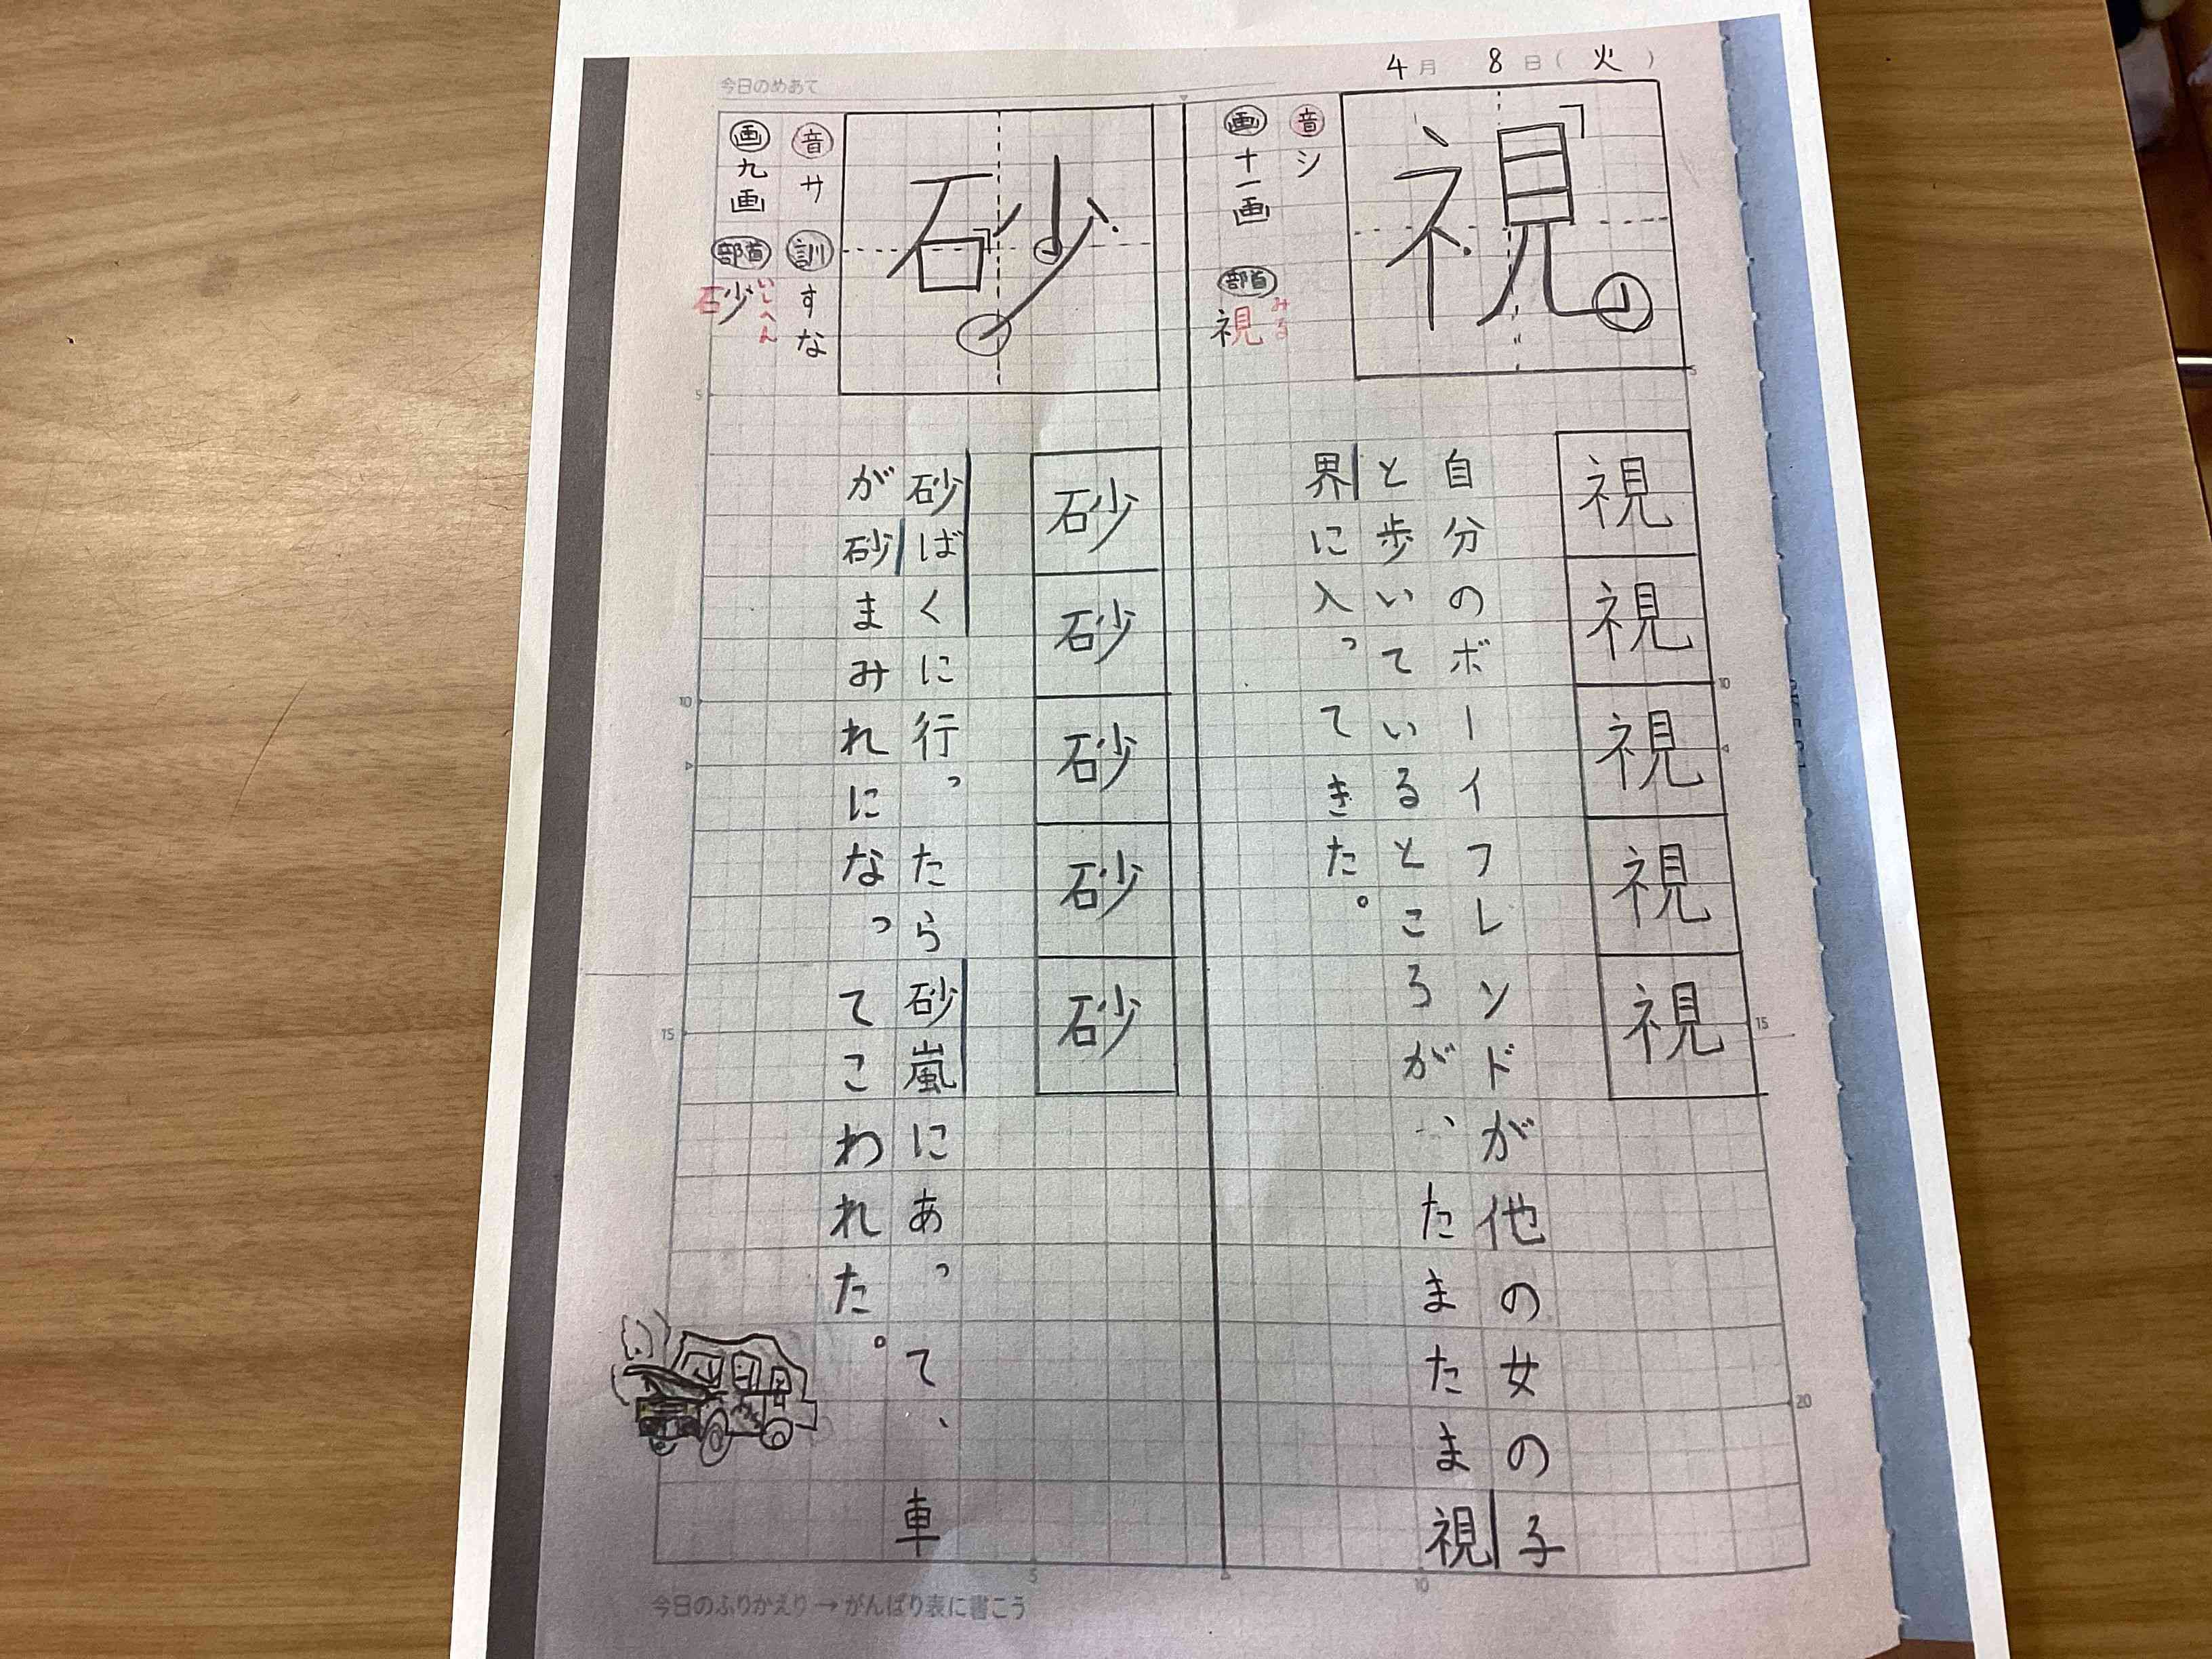 4月 8日(火)
視
音 シ
画 十一画 部首 視 みる
視
視
視
視
視
自分のボーイフレンドが他の女の子
と歩いているところが、たまたま視
界に入ってきた。
今日のめあて
砂
音 サ 訓 すな
画 九画 部首 砂 いしへん
砂
砂
砂
砂
砂
砂ばくに行ったら砂嵐にあって、車
が砂まみれになってこわれた。
5
10
15
20
5
10
15
5
10
今日のふりかえり→がんばり表に書こう